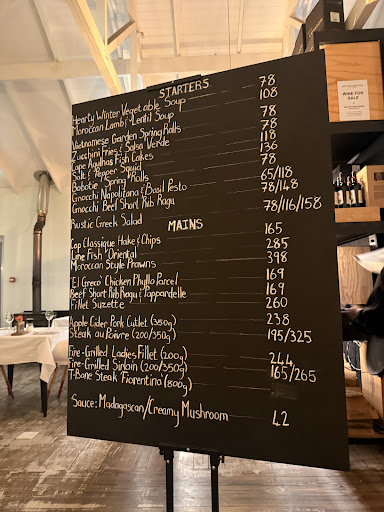 STARTERS
Hearty Winter Vegetable Soup 78
Moroccan Lamb & Lentil Soup 108
Vietnamese Garden Spring Rolls 78
Zucchini Fries & Salsa Verde 78
Cape Agulhas Fish Cakes 118
Salt & Pepper Squid 136
Bobotie Spring Rolls 78
Gnocchi Napolitana & Basil Pesto 65/118
Gnocchi Beef Short Rib Ragu 78/148
Rustic Greek Salad 78/116/158
MAINS
Cap Classique Hake & Chips 165
Lyne Fish 'Oriental' 285
Moroccan Style Prawns 398
'El Greco' Chicken Phyllo Parcel 169
Beef Short Rib Ragu & Pappardelle 169
Fillet Suzette 260
Apple Cider Pork Cutlet (350g) 238
Steak au Poivre (200/350g) 195/325
Fire-Grilled Ladies Fillet (200g) 244
Fire-Grilled Sirloin (200/350g) 165/265
T-Bone Steak Fiorentina (800g)
Sauce: Madagascan/Creamy Mushroom 42
WINE FOR
SALE